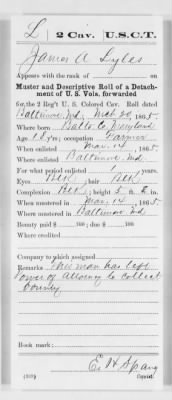 L | 2 Cav. | U.S.C.T.
James A Lyles
Appears with the rank of on
Muster and Descriptive Roll of a Detachment
of U. S. Vols. forwarded
for the 2 Reg't U. S. Colored Cav. Roll dated
Baltimore, Md, Mch 28, 1865.
Where born Balto Co, Maryland
Age y'rs; occupation Farmer
When enlisted Mar. 14, 1865.
Where enlisted Baltimore, Md.
For what period enlisted 1 years.
Eyes Blk; hair Blk
Complexion Blk; height 5 ft. in.
When mustered in Mar. 14, 1865.
Where mustered in Baltimore Md
Bounty paid $ 100; due $ 100
Where credited
Company to which assigned
Remarks This man has left
Power of Attorney to collect
bounty
Book mark:
E. H. Spang
Copyist.